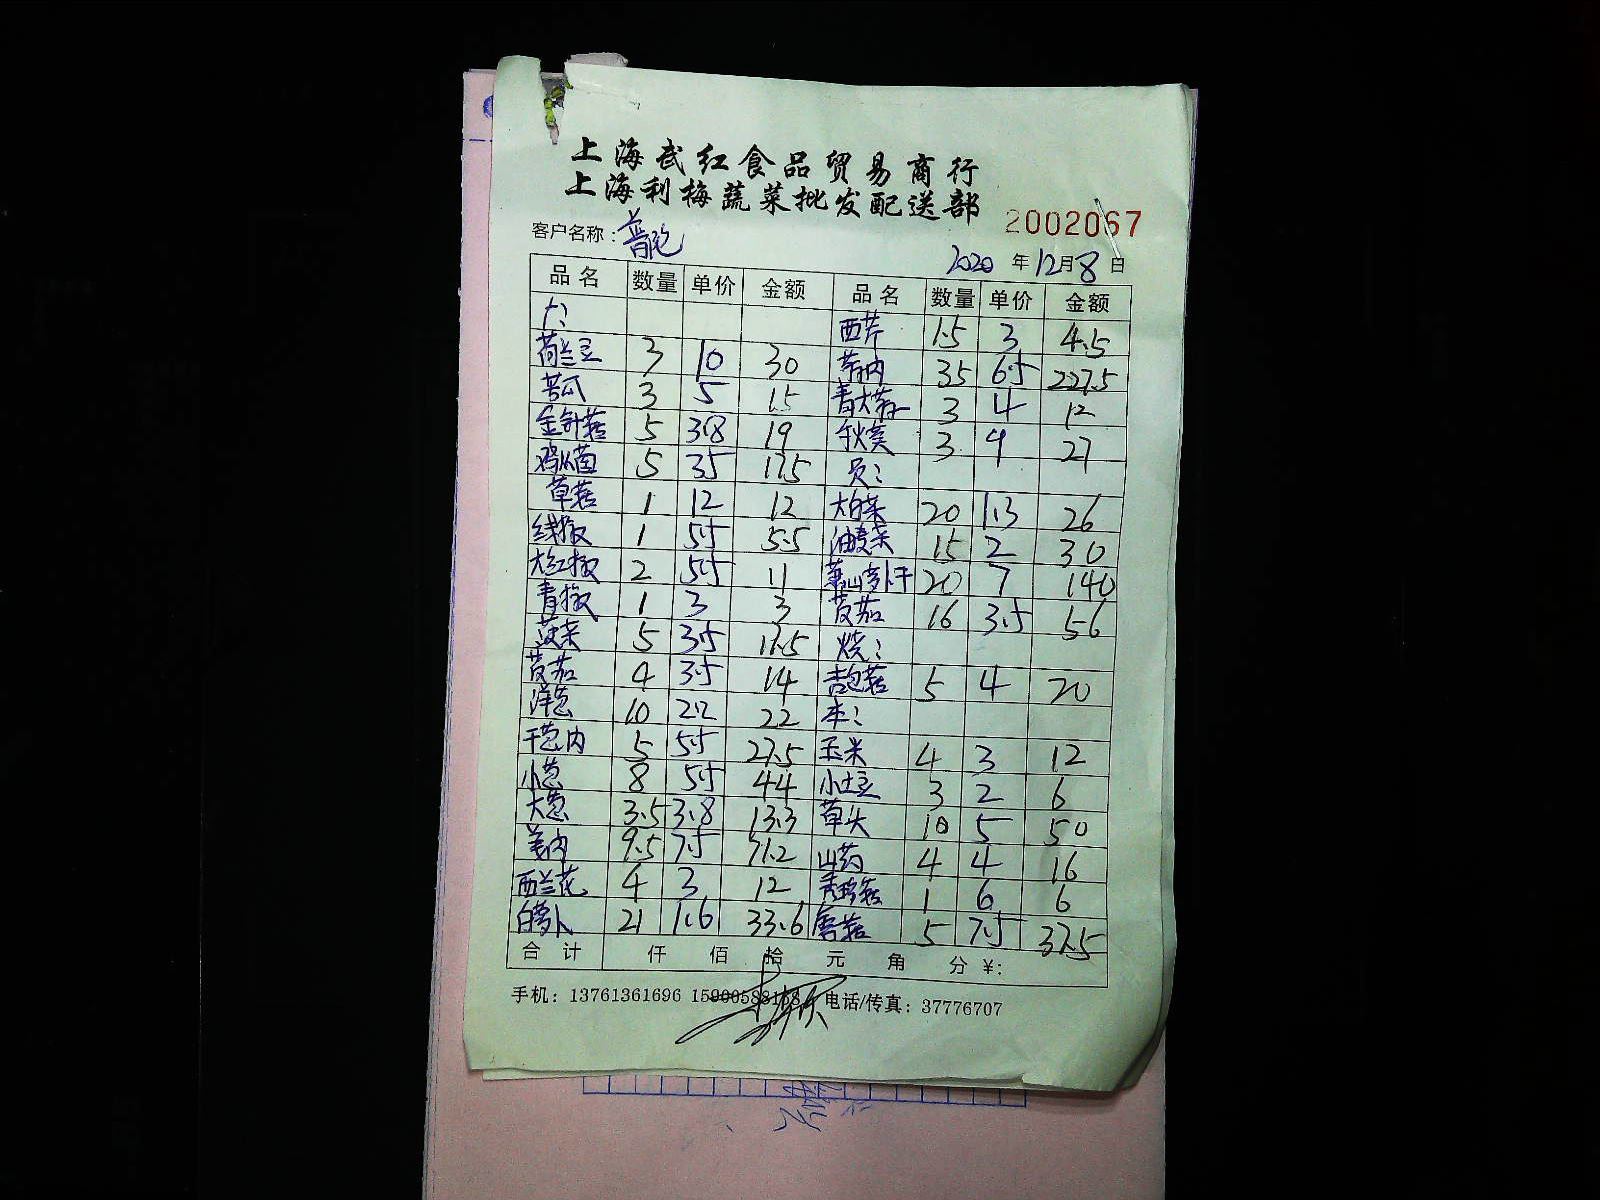 上海武红食品贸易商行
上海利梅蔬菜批发配送部
2002067
客户名称：普陀
2020 年 12月 8 日
品名 数量 单价 金额 品名 数量 单价 金额
西芹 1.5 3 4.5
荷兰豆 3 10 30 35 6.5 227.5
苦瓜 3 5 15 3 4 12
金针菇 5 3.8 19 3 9 27
5 3.5 17.5 员：
草菇 1 12 12 大白菜 20 1.3 26
线椒 1 5.5 5.5 油麦菜 15 2 30
大红椒 2 5.5 11 萧山萝卜干 20 7 140
青椒 1 3 3 茄 16 3.5 56
菠菜 5 3.5 17.5 烧：
茄 4 3.5 14 杏包菇 5 4 20
洋葱 10 2.2 22 本：
干葱肉 5 5.5 27.5 玉米 4 3 12
小葱 8 5.5 44 小土豆 3 2 6
大葱 3.5 3.8 13.3 草头 10 5 50
姜肉 9.5 7.5 71.2 山药 4 4 16
西兰花 4 3 12 秀珍菇 1 6 6
白萝卜 21 1.6 33.6 磨菇 5 7.5 37.5
合计 仟 佰 拾 元 角 分 ¥:
手机：13761361696 15900588158 电话/传真：37776707